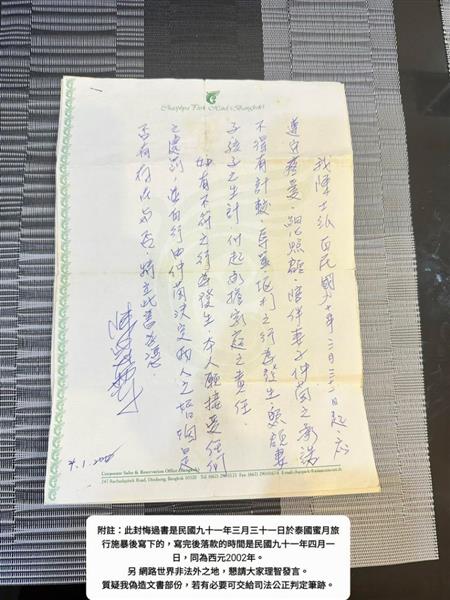 Chaophya Park Hotel (Bangkok)
我陳士 自民國九十 年三月三十一日起,应
遵守 愛、細心照顧陪伴妻子仲 之承諾
不得有計較、辱 之行為發生,照顧妻
子孩子之生計,付起承擔家庭之責任.
如有不符之行為發生,本人願接受任何
之處罰,並自行由仲 決定兩人之婚姻是
否有存在与否,特立此書為憑.
4.1.2002
Corporate Sales & Reservation Office
247 Rachadapisek Road, Dindaeng, Bangkok 10320 Tel.
附註：此封悔過書是民國九十一年三月三十一日於泰國蜜月旅
行施暴後寫下的，寫完後落款的時間是民國九十一年四月一
日，同為西元2002年。
另 網路世界非法外之地，懇請大家理智發言。
質疑我偽造文書部份，若有必要可交給司法公正判定筆跡。